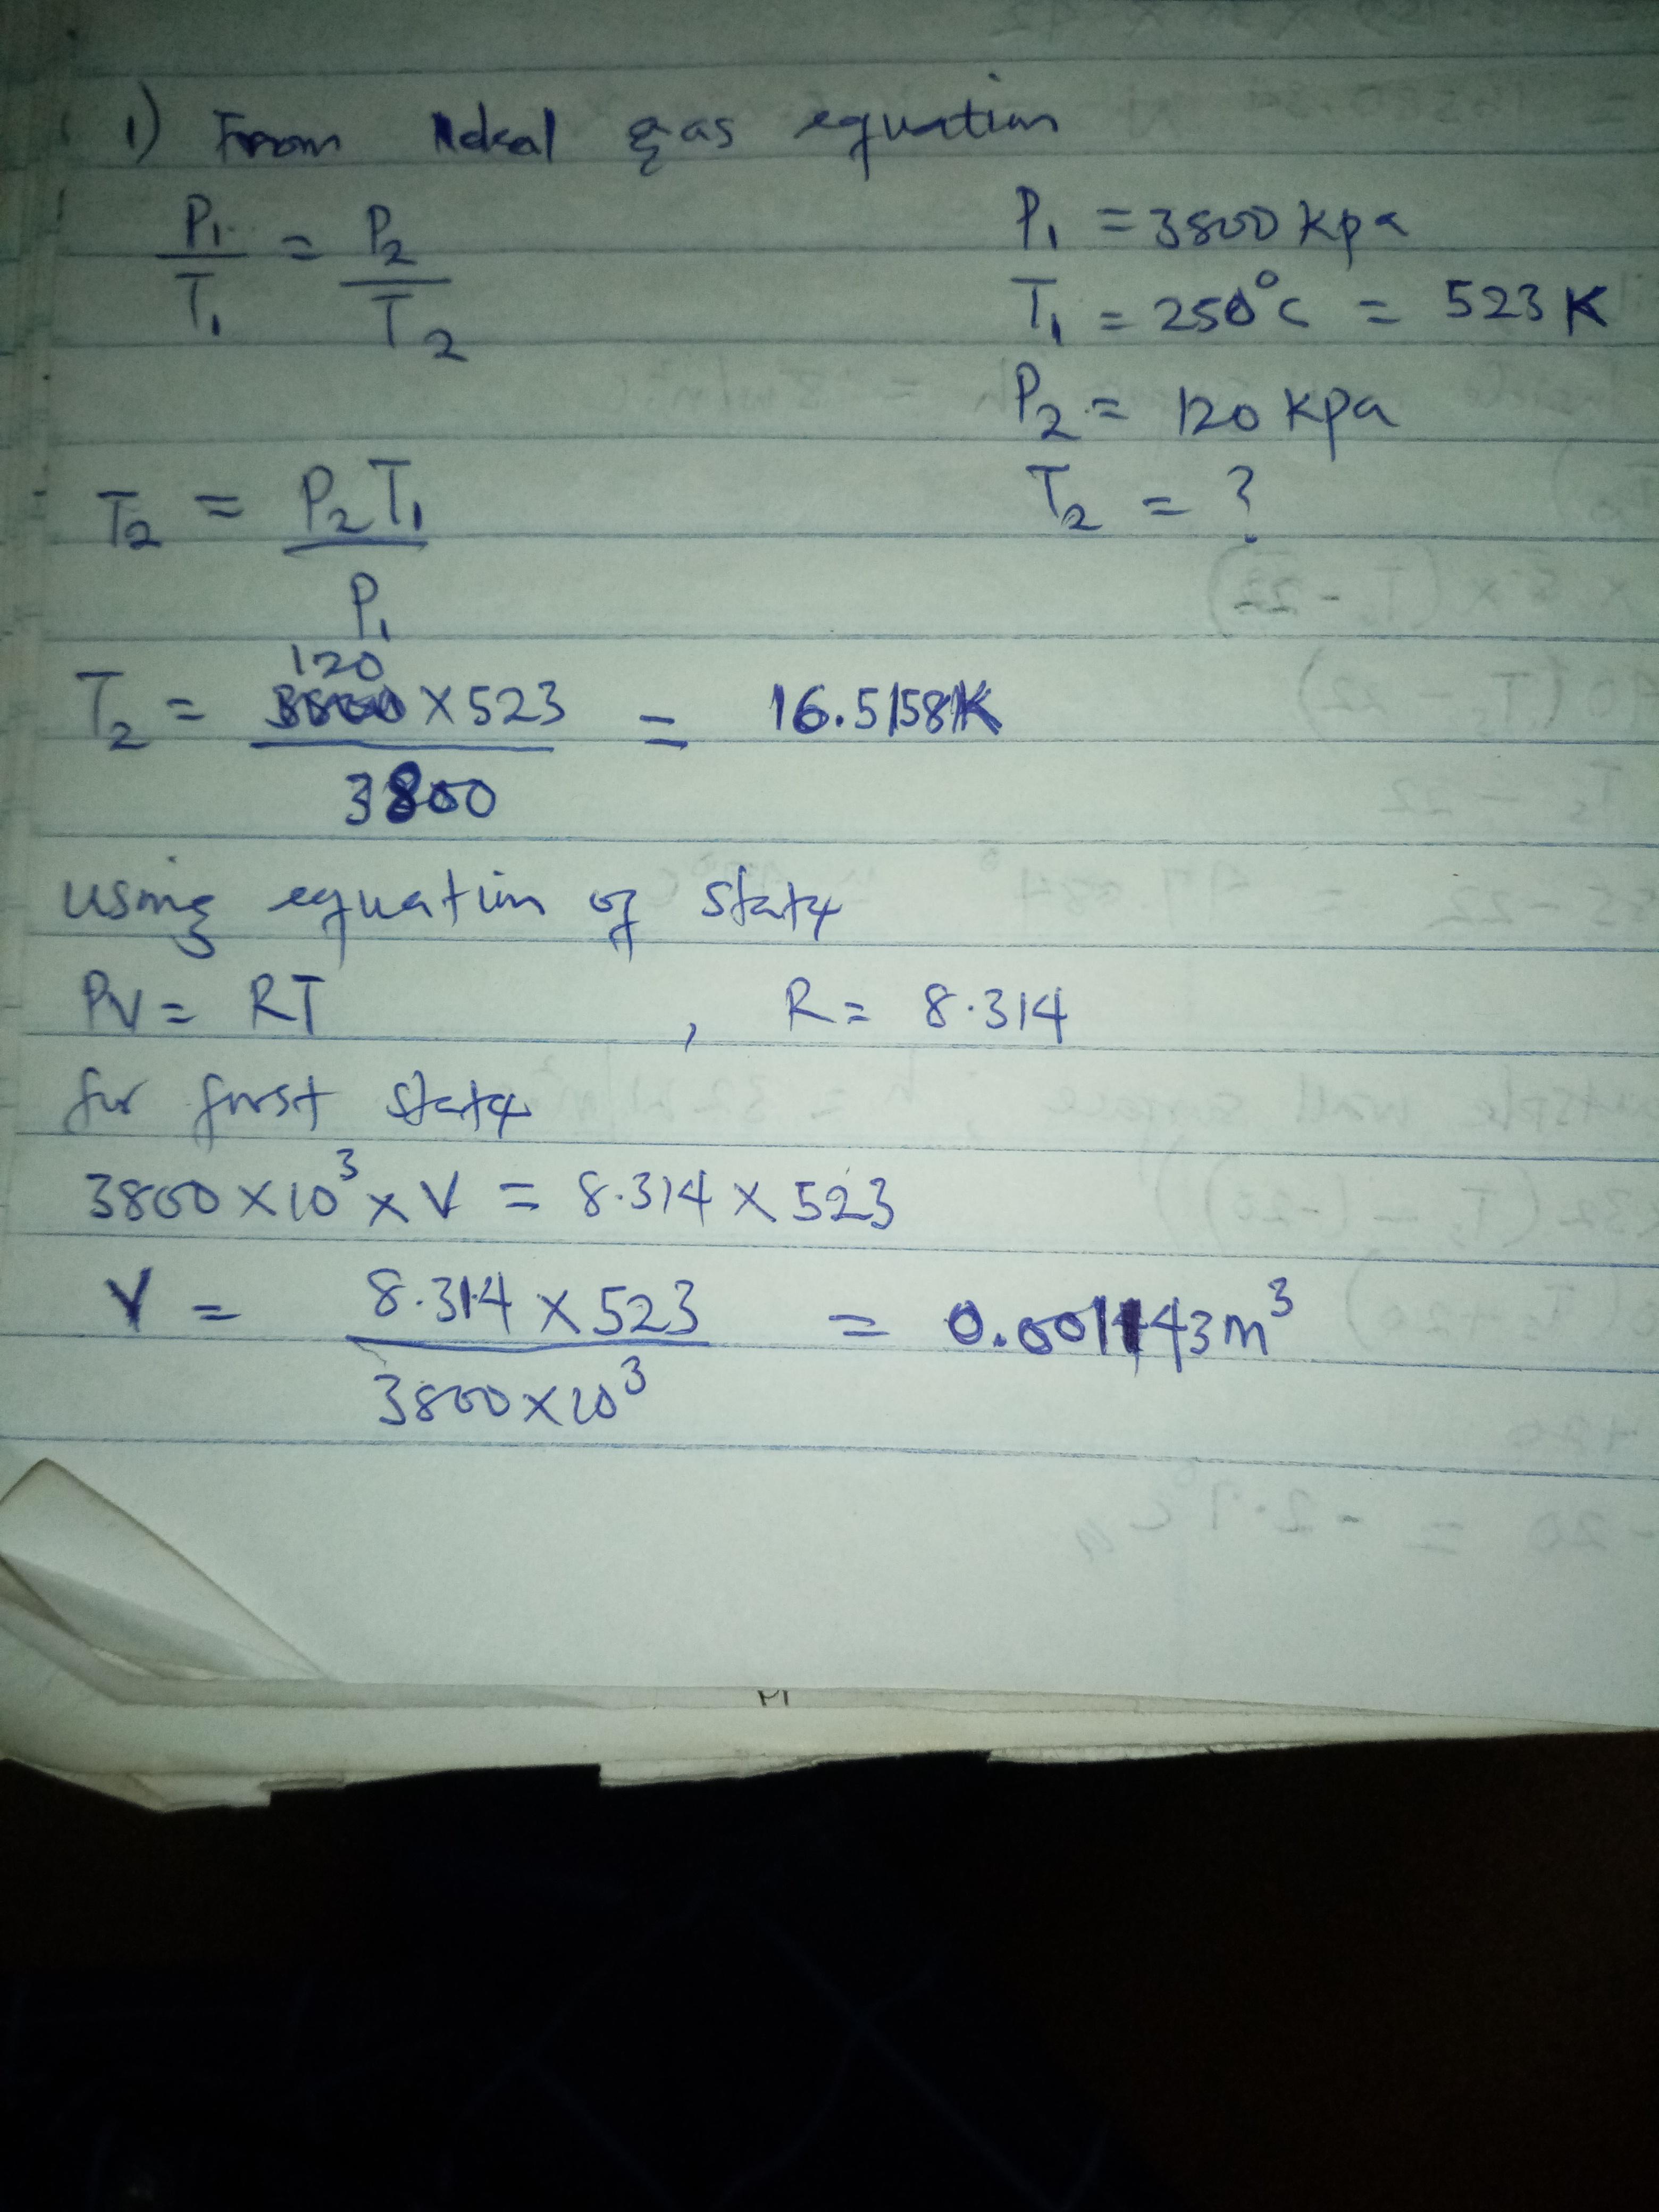 1) From Ideal gas equation
P₁/T₁ = P₂/T₂
P₁ = 3800 kpa
T₁ = 250°c = 523 K
P₂ = 120 kpa
T₂ = ?
T₂ = P₂T₁/P₁
T₂ = 120 × 523/3800 = 16.5158K
using equation of state
PV = RT , R = 8.314
for first state
3800 × 10³ × V = 8.314 × 523
V = 8.314 × 523/3800 × 10³ = 0.001143m³